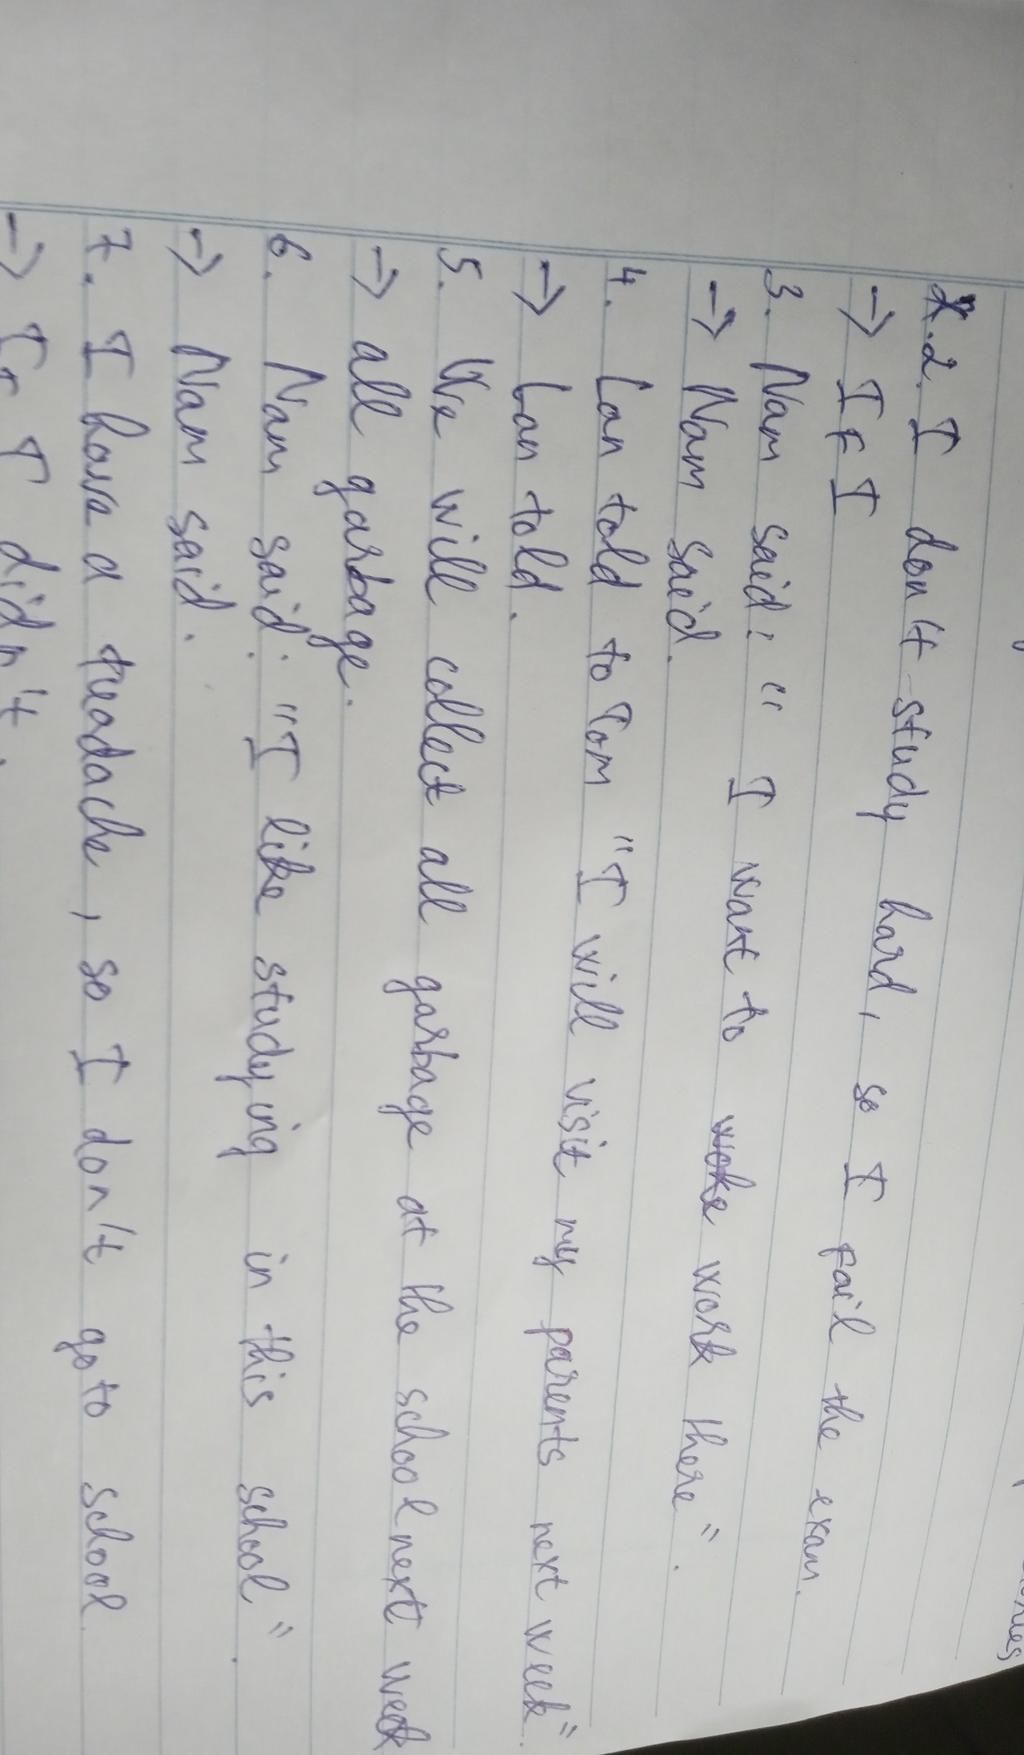 2. I don't study hard, so I fail the exam.
→ If I
3. Nam said: " I want to woke work there".
→ Nam said.
4. Lan told to Tom "I will visit my parents next week".
→ Lan told.
5. We will collect all garbage at the school next week
→ all garbage.
6. Nam said: "I like studying in this school".
→ Nam said.
7. I have a headache, so I don't go to school.
→ If I didn't.